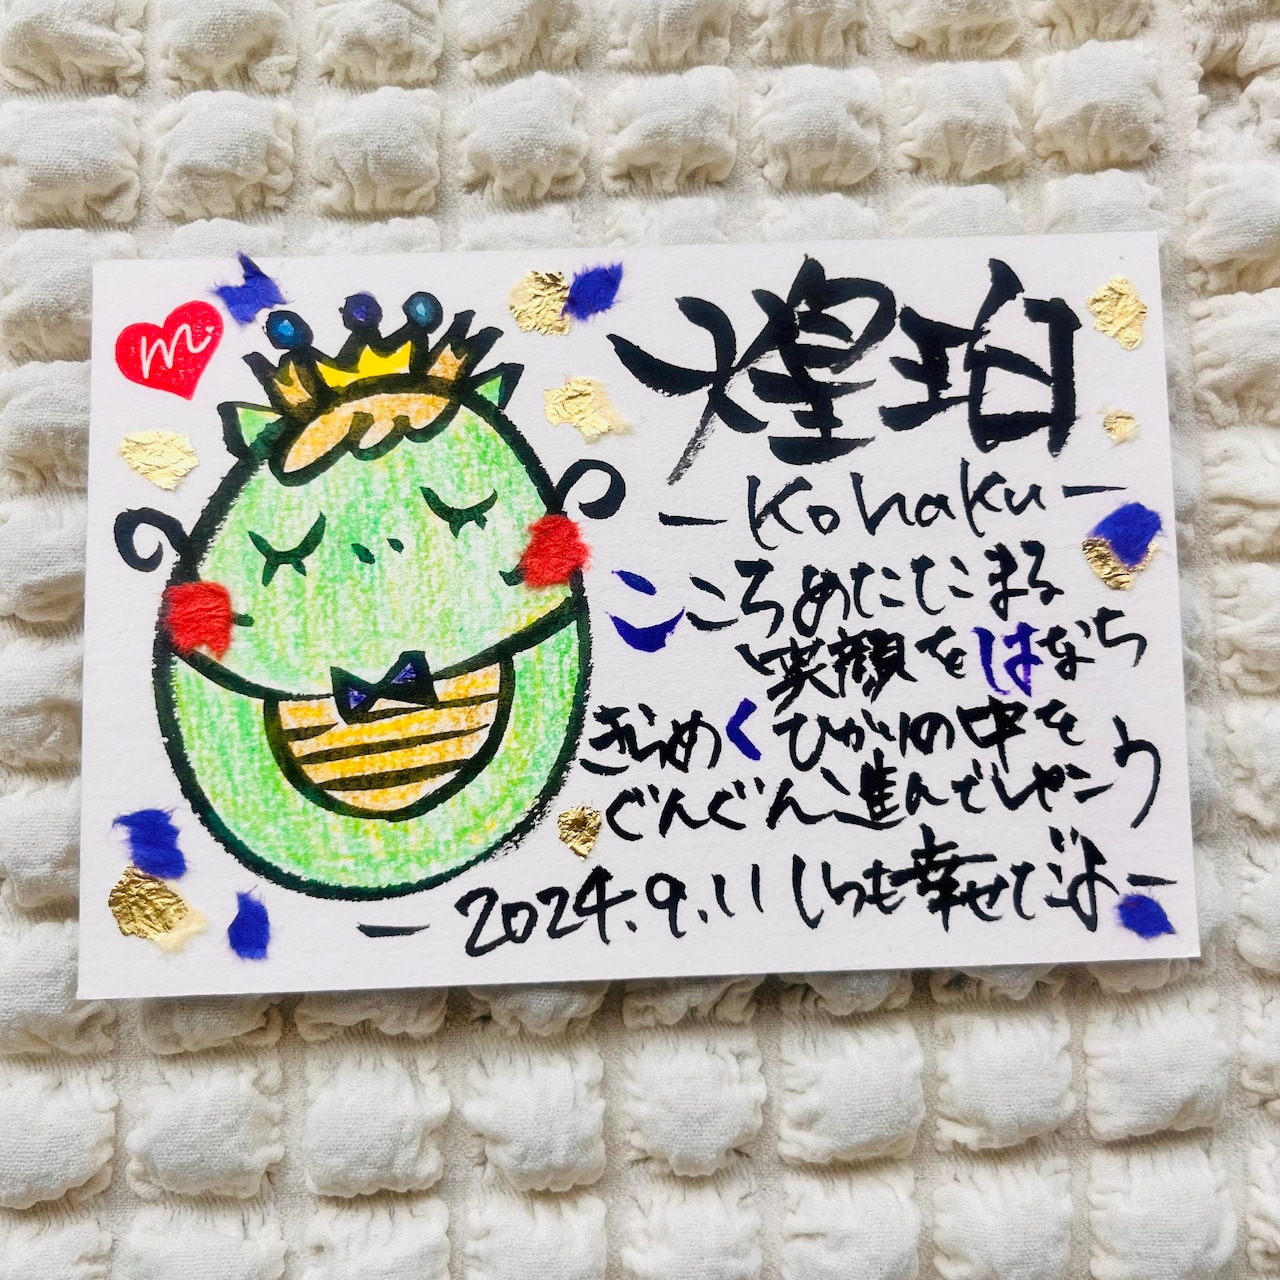 m.
煌珀
-Kohaku-
こころあたたまる
笑顔をはなち
きらめくひかりの中を
ぐんぐん進んでしやこう
-2024.9.11 いつも幸せだよ-